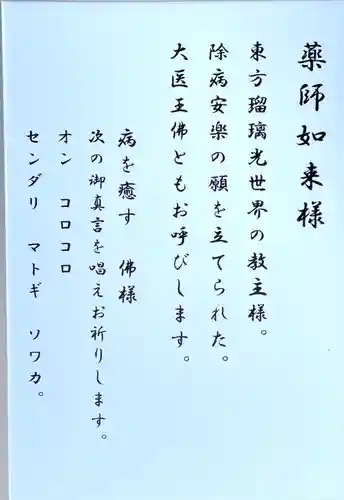 薬師如来様
東方瑠璃光世界の教主様。
除病安楽の願を立てられた。
大医王佛ともお呼びします。
病を癒す　佛様
次の御真言を唱えお祈りします。
オン　コロコロ
センダリ　マトギ　ソワカ。